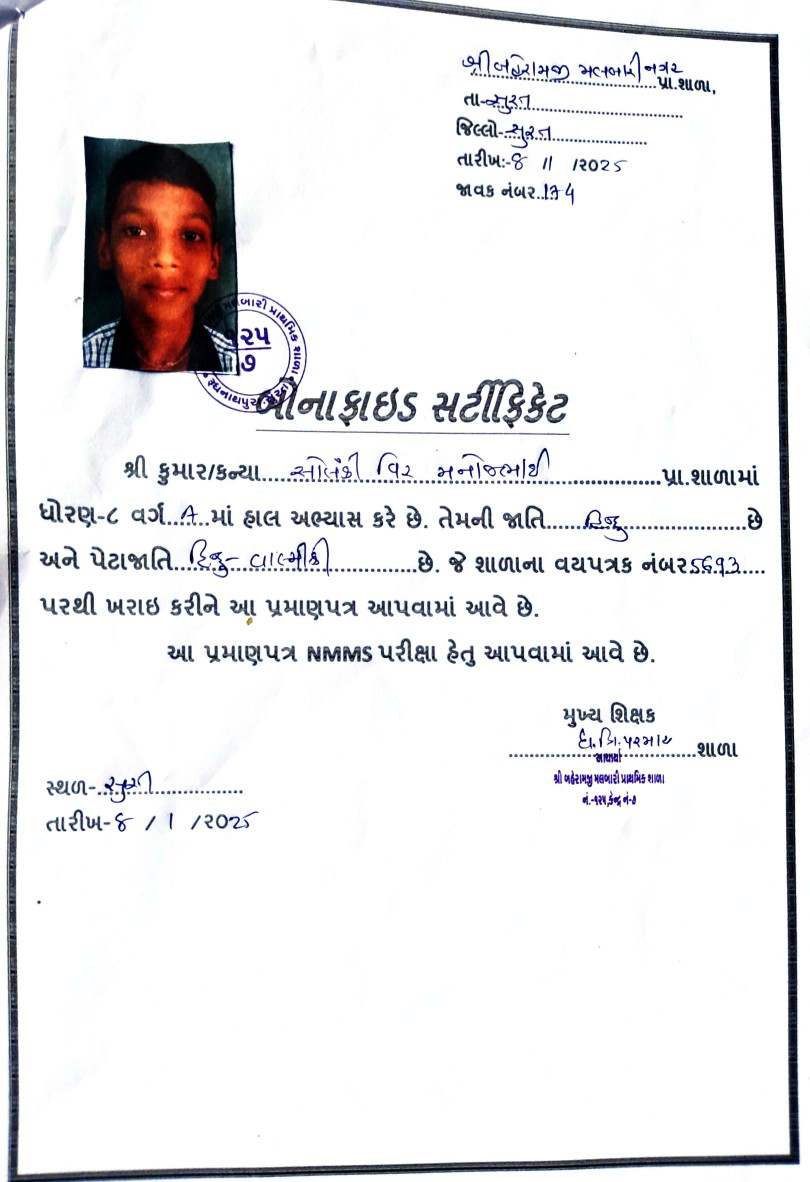 શ્રી બહેરામજી મલબારી નગર
પ્રા.શાળા,
તા-સુરત
જિલ્લો-સુરત
તારીખ:-8 / 1 /2025
જાવક નંબર..174
મલબારી પ્રાથમિક શાળા
૧૨૫
૭
રૂઘનાથપુરા સુરત
બોનાફાઇડ સર્ટીફિકેટ
શ્રી કુમાર/કન્યા....સોલંકી વિર મનોજભાઈ....પ્રા.શાળામાં
ધોરણ-૮ વર્ગ..A..માં હાલ અભ્યાસ કરે છે. તેમની જાતિ....હિન્દુ....છે
અને પેટાજાતિ..હિન્દુ-વાલ્મીકી....છે. જે શાળાના વયપત્રક નંબર 5693....
પરથી ખરાઇ કરીને આ પ્રમાણપત્ર આપવામાં આવે છે.
આ પ્રમાણપત્ર NMMS પરીક્ષા હેતુ આપવામાં આવે છે.
મુખ્ય શિક્ષક
પરમાર
શાળા
આચાર્ય
શ્રી બહેરામજી મલબારી પ્રાથમિક શાળા
નં.-૧૨૫,કેન્દ્ર નં-૭
સ્થળ-સુરત
તારીખ-8 / 1 /2025